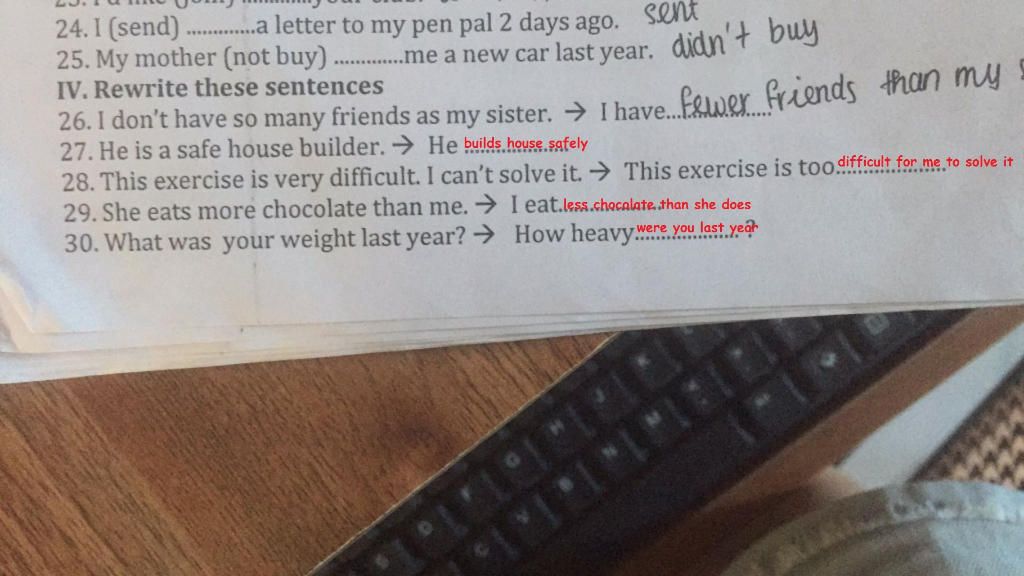 24. I (send) ..............a letter to my pen pal 2 days ago. sent
25. My mother (not buy) ..............me a new car last year. didn't buy
IV. Rewrite these sentences
26. I don't have so many friends as my sister. → I have...fewer friends than my
27. He is a safe house builder. → He builds house safely
28. This exercise is very difficult. I can't solve it. → This exercise is too difficult for me to solve it
29. She eats more chocolate than me. → I eat less chocolate than she does
30. What was your weight last year? → How heavy were you last year ?